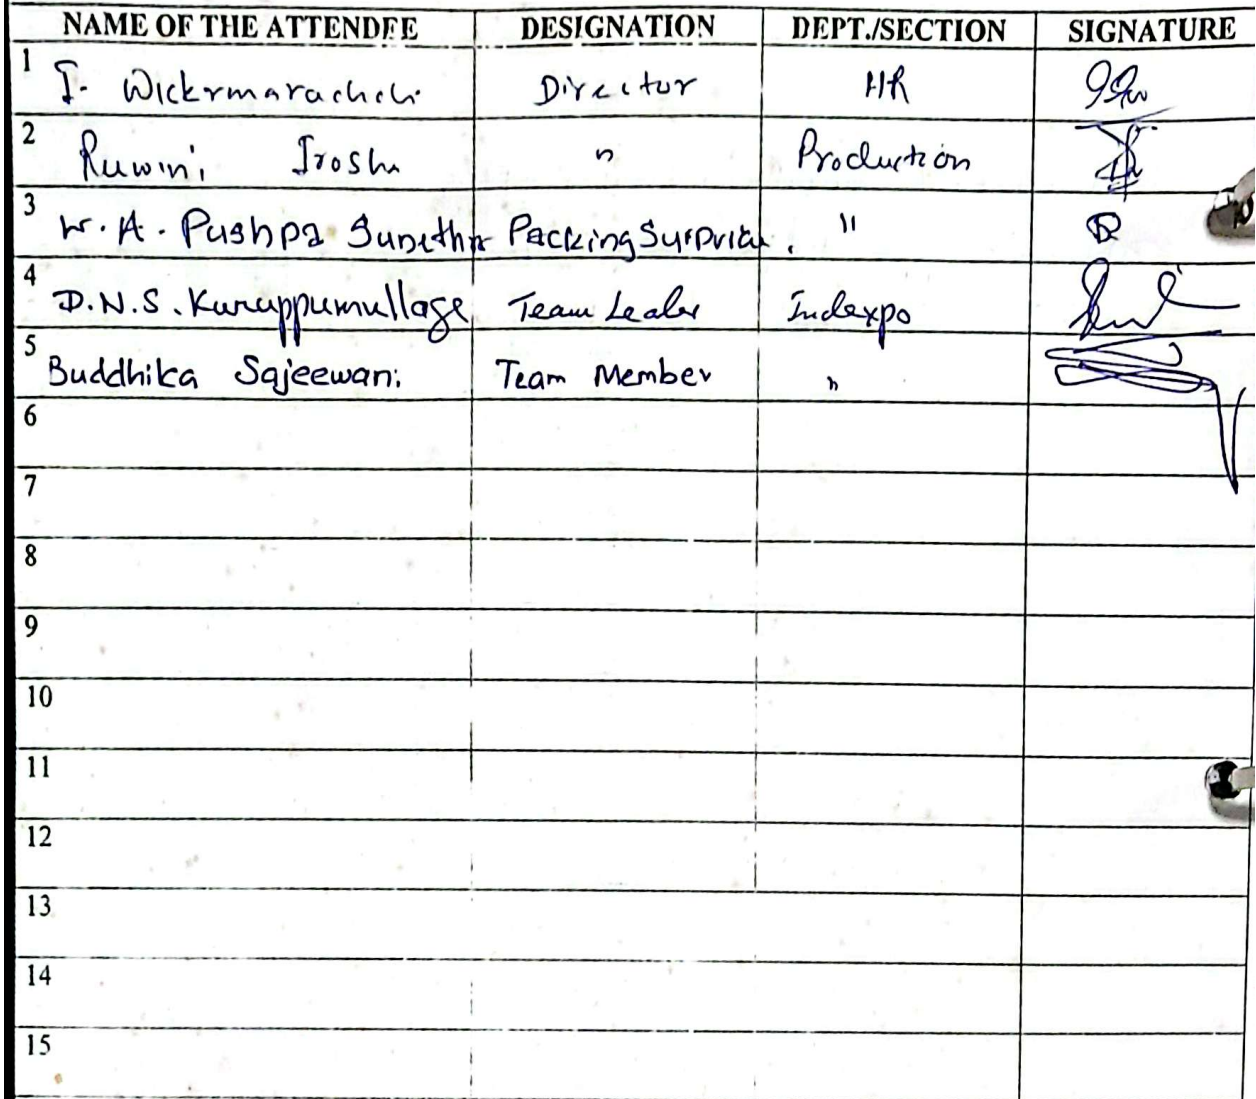 NAME OF THE ATTENDEE DESIGNATION DEPT./SECTION SIGNATURE
1 I. Wickrmarachchi Director HR
2 Ruwini Irosha " Production
3 W. A. Pushpa Sunethra Packing Surpvier. "
4 D.N.S. Kuruppumullage Team Leader Indexpo
5 Buddhika Sajeewani Team Member "
6
7
8
9
10
11
12
13
14
15